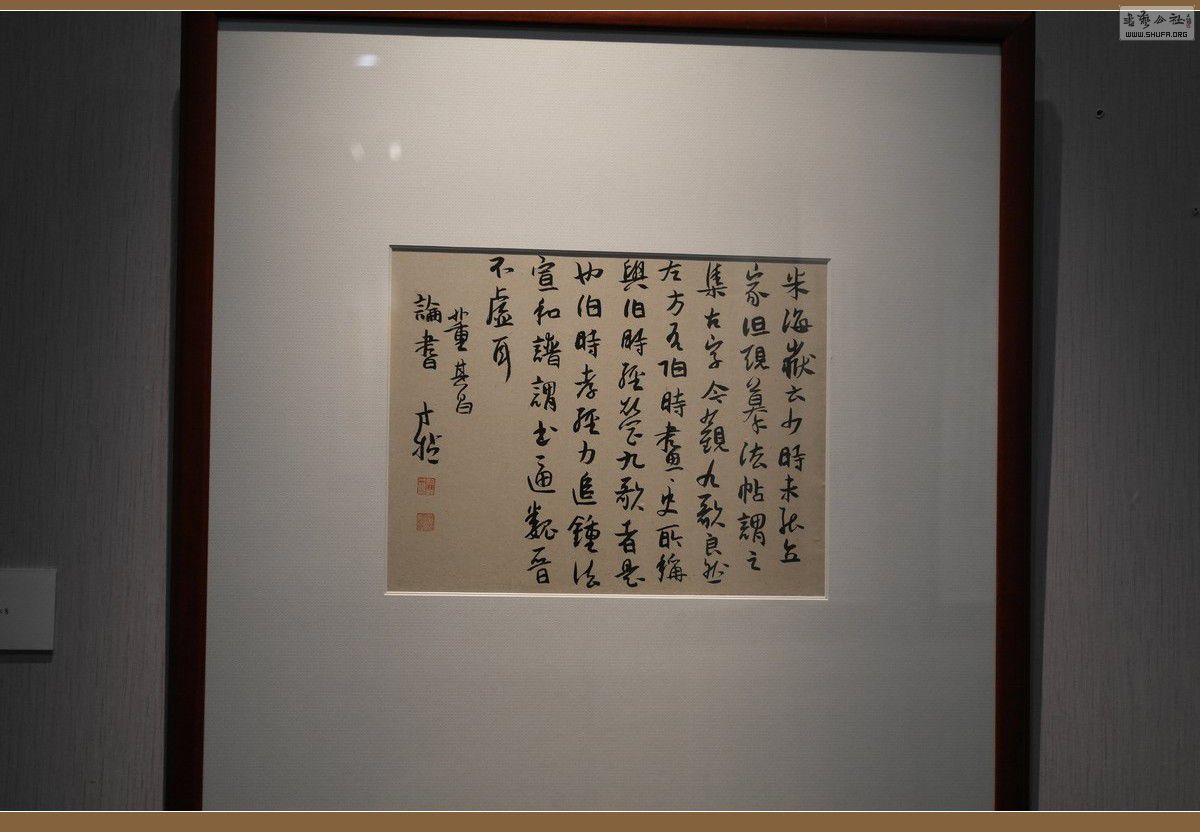 米海嶽云少時未能立
家但規摹法帖謂之
集古字今觀九歌良然
左方伯時畫、史所稱
與伯時經營九歌者是
也伯時孝經力追鍾法
宣和譜謂書逼魏晉
不虛耳
董其昌
論書
書藝公社
WWW.SHUFA.ORG